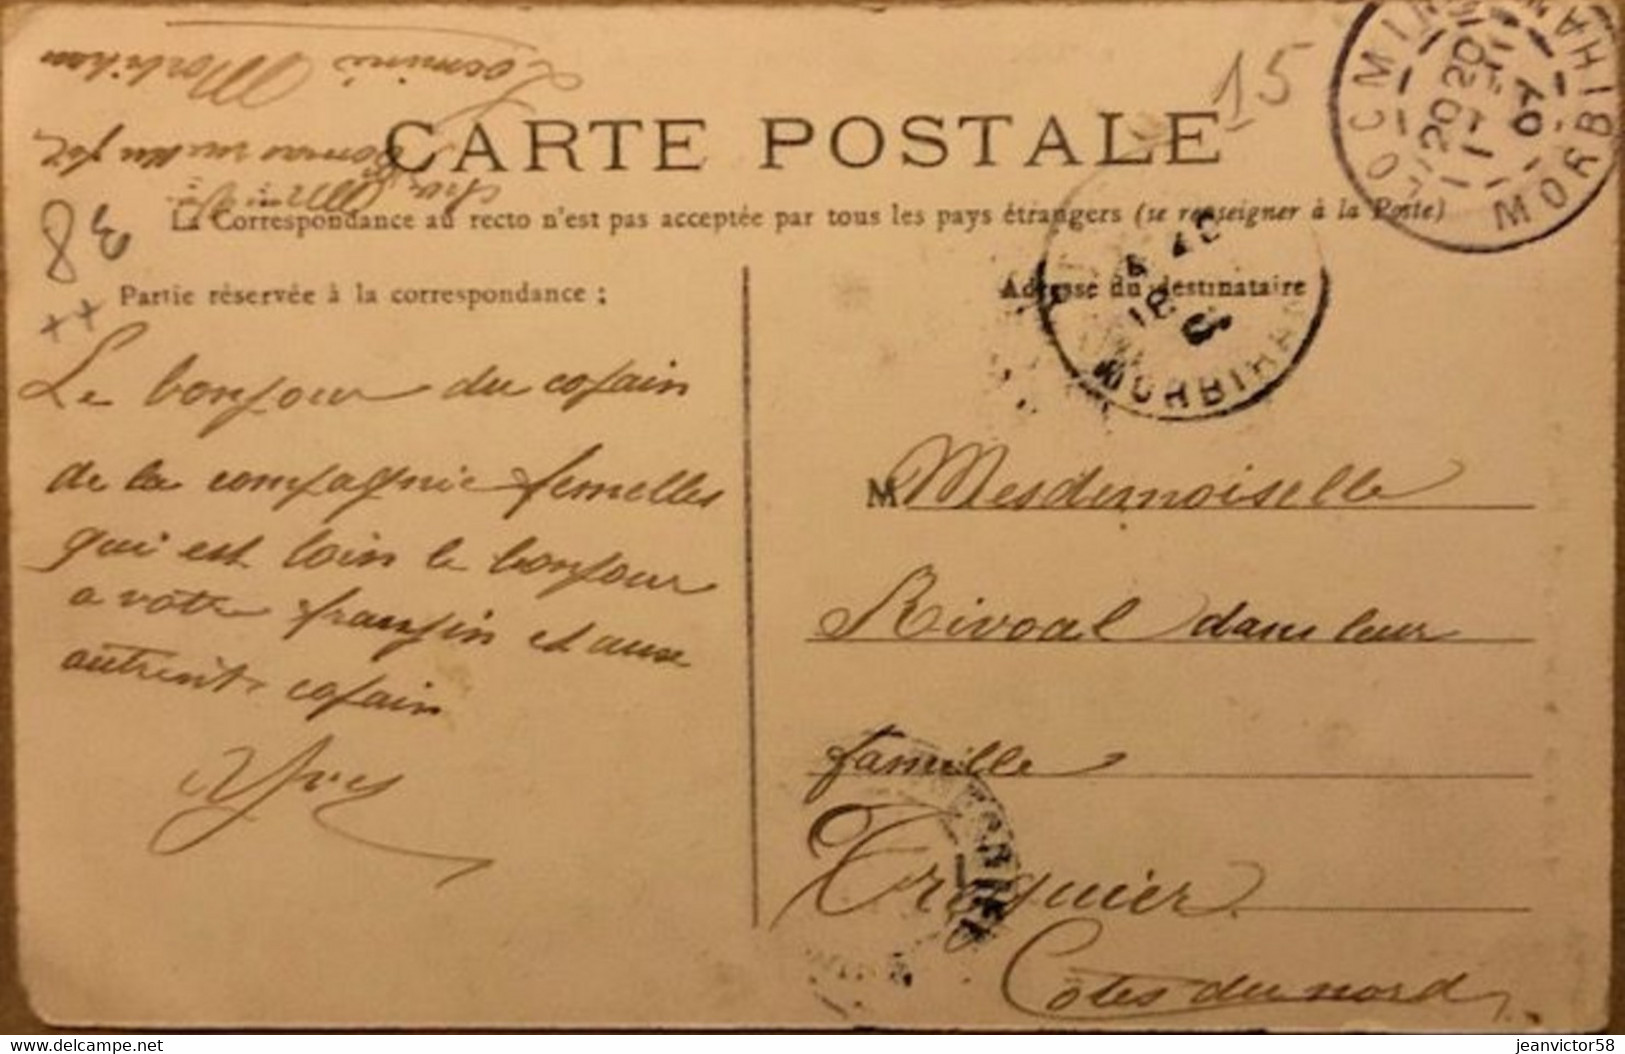 Locminé Morbihan
15
CARTE POSTALE
La Correspondance au recto n'est pas acceptée par tous les pays étrangers (se renseigner à la Poste)
38
++
Partie réservée à la correspondance :
Le bonjour du copain
de la compagnie femelles
qui est loin le bonjour
a votre franfin et aux
copain
Yves
Adresse du destinataire
M Mesdemoiselle
Rivoal dans leur
famille
Treguier
Côtes du nord
LOCMINÉ
MORBIHAN
20 20
07
MORBIHAN
18
jeanvictor58
delcampe.net